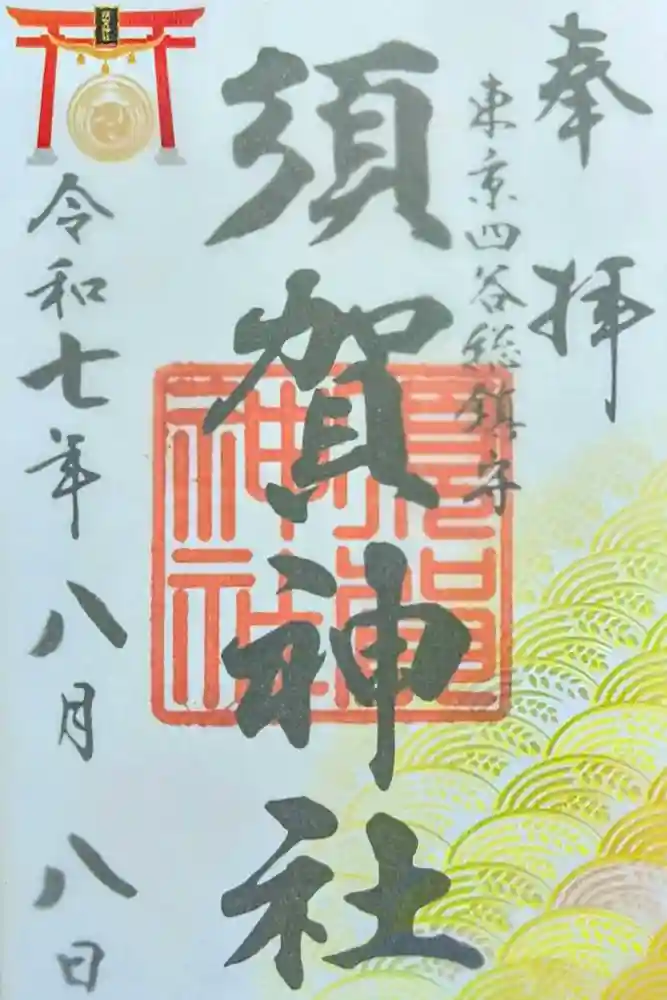 奉拝
東京四谷総鎮守
須賀神社
須賀神社
令和七年八月八日